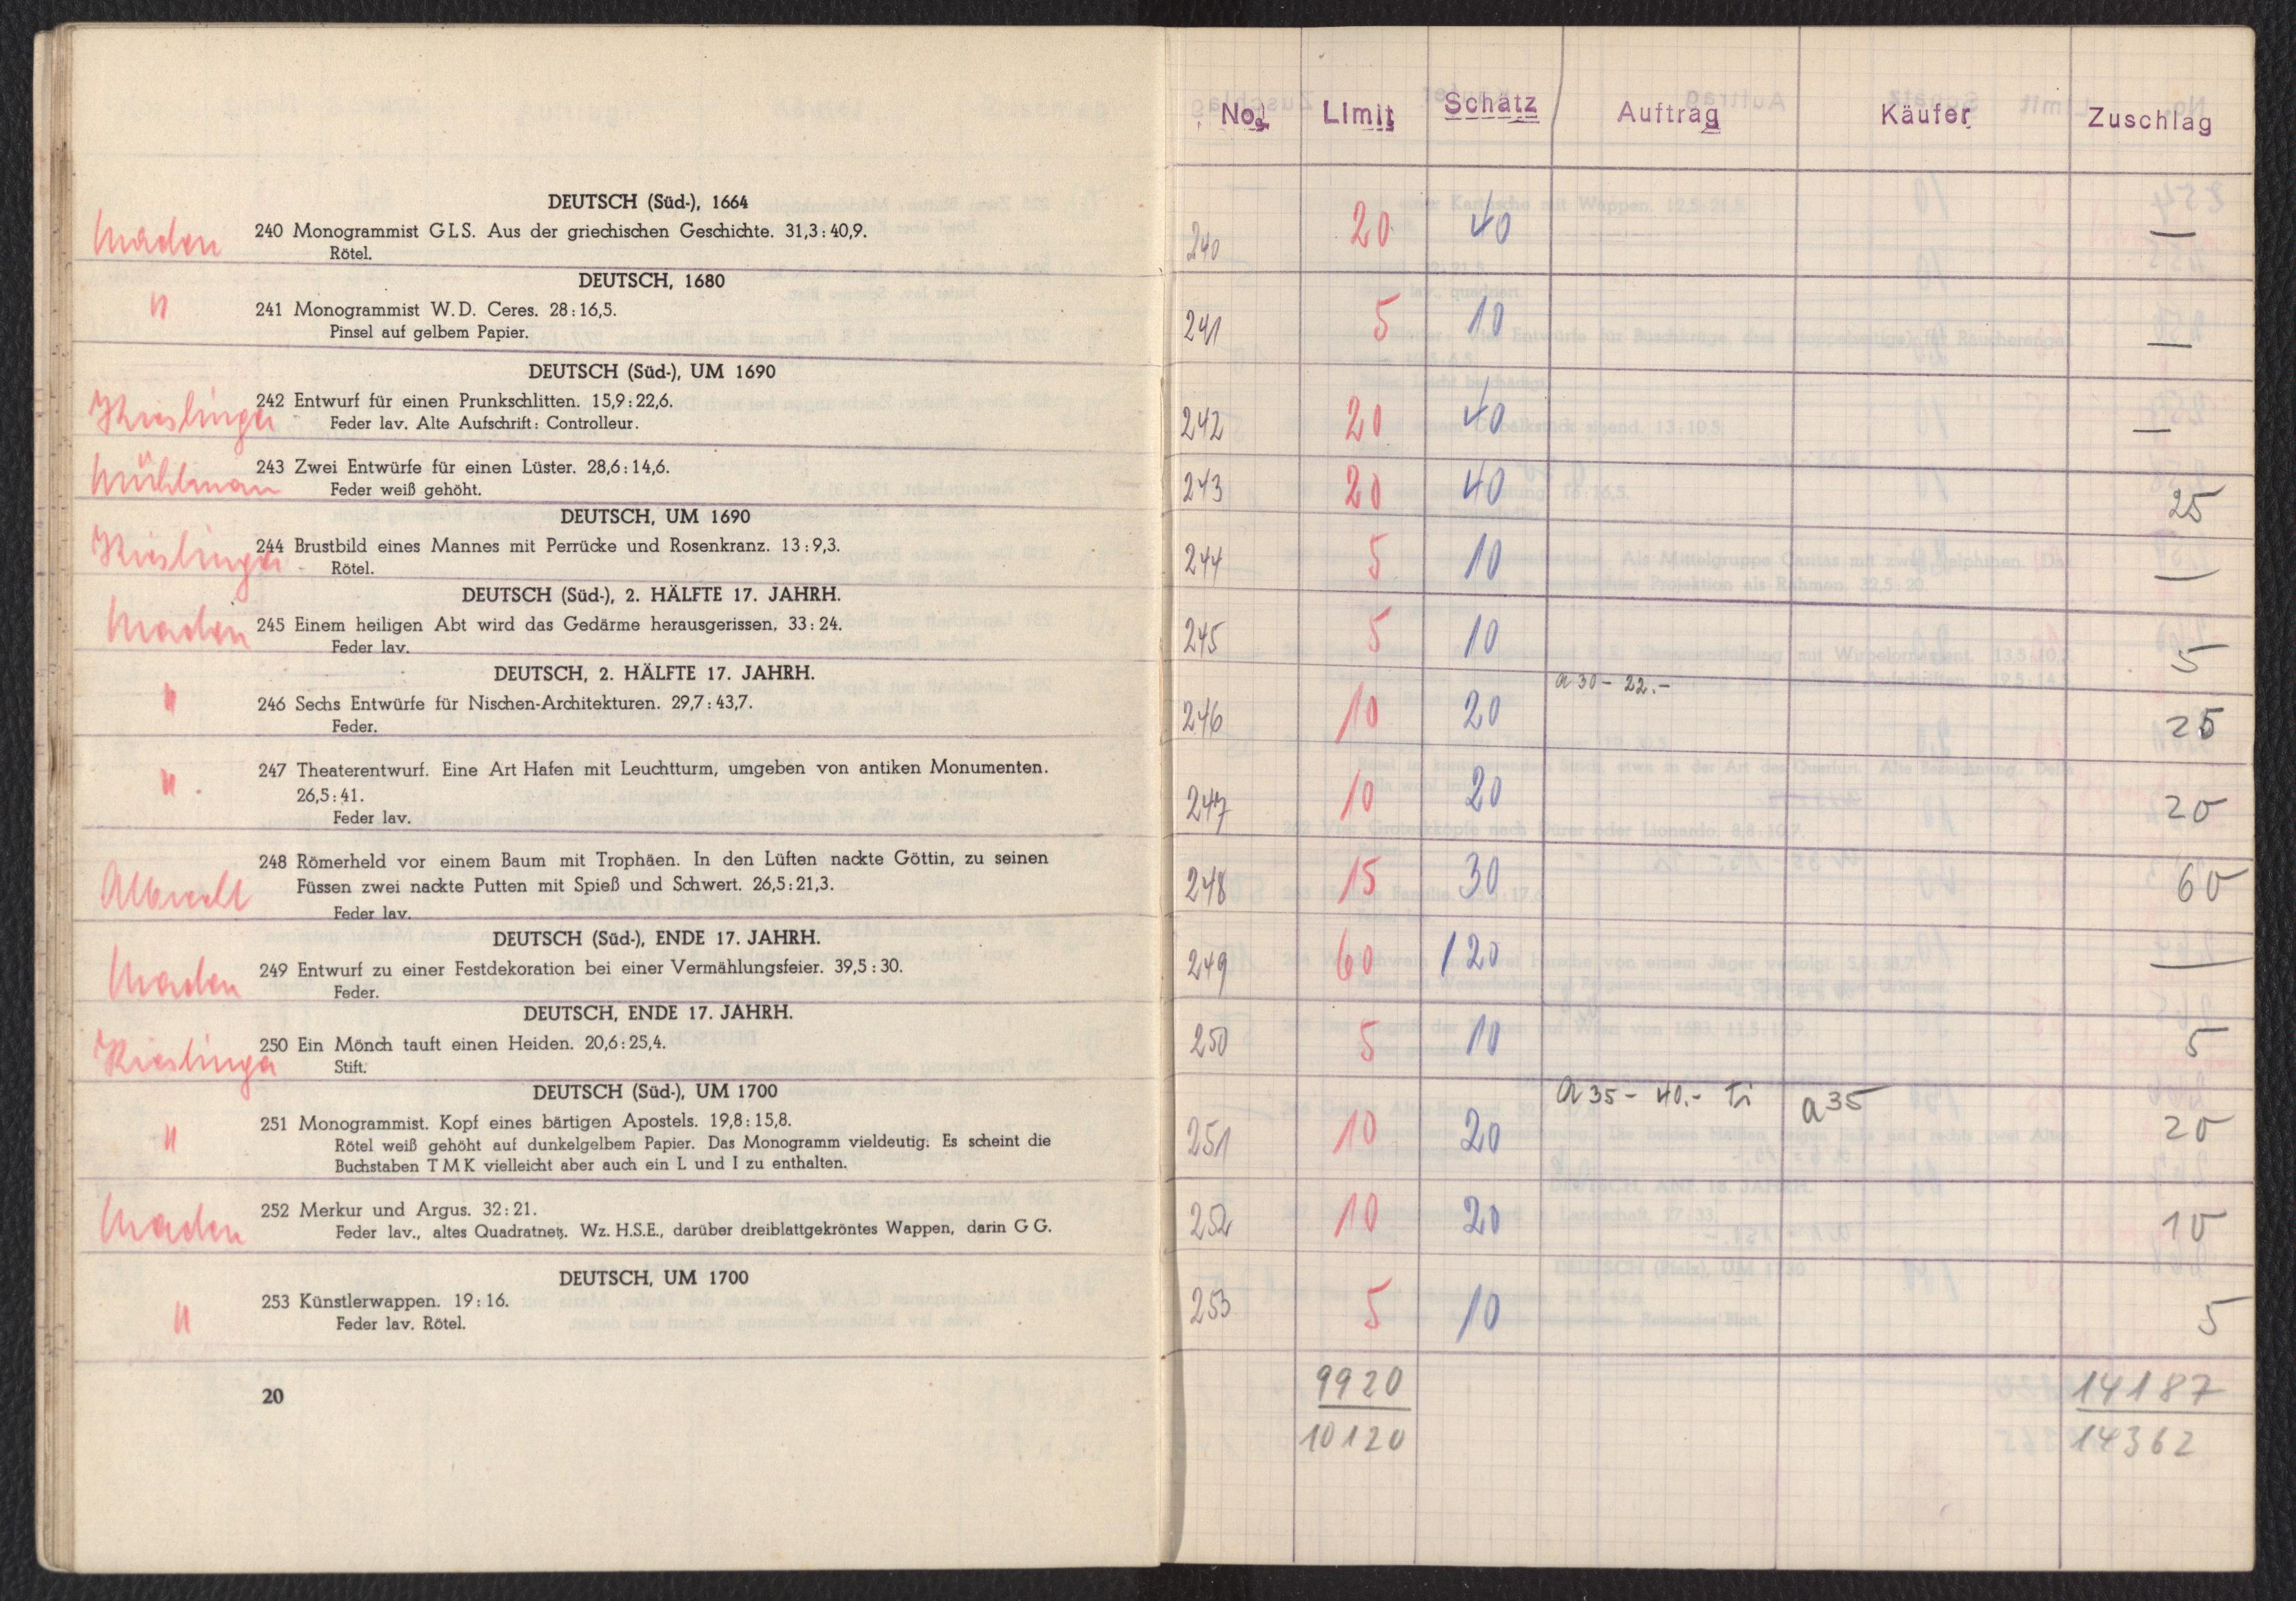 DEUTSCH (Süd-), 1664
240 Monogrammist GLS. Aus der griechischen Geschichte. 31,3 : 40,9.
Rötel.
DEUTSCH, 1680
"
241 Monogrammist W. D. Ceres. 28 : 16,5.
Pinsel auf gelbem Papier.
DEUTSCH (Süd-), UM 1690
Kieslinger
242 Entwurf für einen Prunkschlitten. 15,9 : 22,6.
Feder lav. Alte Aufschrift: Controlleur.
Mühlman
243 Zwei Entwürfe für einen Lüster. 28,6 : 14,6.
Feder weiß gehöht.
DEUTSCH, UM 1690
Kieslinger
244 Brustbild eines Mannes mit Perrücke und Rosenkranz. 13 : 9,3.
Rötel.
DEUTSCH (Süd-), 2. HÄLFTE 17. JAHRH.
245 Einem heiligen Abt wird das Gedärme herausgerissen. 33 : 24.
Feder lav.
DEUTSCH, 2. HÄLFTE 17. JAHRH.
"
246 Sechs Entwürfe für Nischen-Architekturen. 29,7 : 43,7.
Feder.
"
247 Theaterentwurf. Eine Art Hafen mit Leuchtturm, umgeben von antiken Monumenten.
26,5 : 41.
Feder lav.
Albrecht
248 Römerheld vor einem Baum mit Trophäen. In den Lüften nackte Göttin, zu seinen
Füssen zwei nackte Putten mit Spieß und Schwert. 26,5 : 21,3.
Feder lav.
DEUTSCH (Süd-), ENDE 17. JAHRH.
249 Entwurf zu einer Festdekoration bei einer Vermählungsfeier. 39,5 : 30.
Feder.
DEUTSCH, ENDE 17. JAHRH.
Kieslinger
250 Ein Mönch tauft einen Heiden. 20,6 : 25,4.
Stift.
DEUTSCH (Süd-), UM 1700
"
251 Monogrammist. Kopf eines bärtigen Apostels. 19,8 : 15,8.
Rötel weiß gehöht auf dunkelgelbem Papier. Das Monogramm vieldeutig. Es scheint die
Buchstaben T M K vielleicht aber auch ein L und I zu enthalten.
252 Merkur und Argus. 32 : 21.
Feder lav., altes Quadratnetz. Wz. H.S.E., darüber dreiblattgekröntes Wappen, darin G G.
DEUTSCH, UM 1700
"
253 Künstlerwappen. 19 : 16.
Feder lav. Rötel.
20
No. Limit Schätz Auftrag Käufer Zuschlag
240 20 40 —
241 5 10 —
242 20 40 —
243 20 40 25
244 5 10 —
245 5 10 5
a 30 - 22.-
246 10 20 25
247 10 20 20
248 15 30 60
249 60 120 —
250 5 10 5
a 35 - 40.- a 35
251 10 20 20
252 10 20 10
253 5 10 5
9920 14187
10120 14362